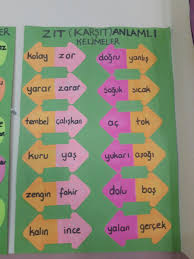 ZIT (KARŞIT) ANLAMLI
KELİMELER
kolay zor
doğru yanlış
yarar zarar
soğuk sıcak
tembel çalışkan
aç tok
kuru yaş
yukarı aşağı
zengin fakir
dolu boş
kalın ince
yalan gerçek